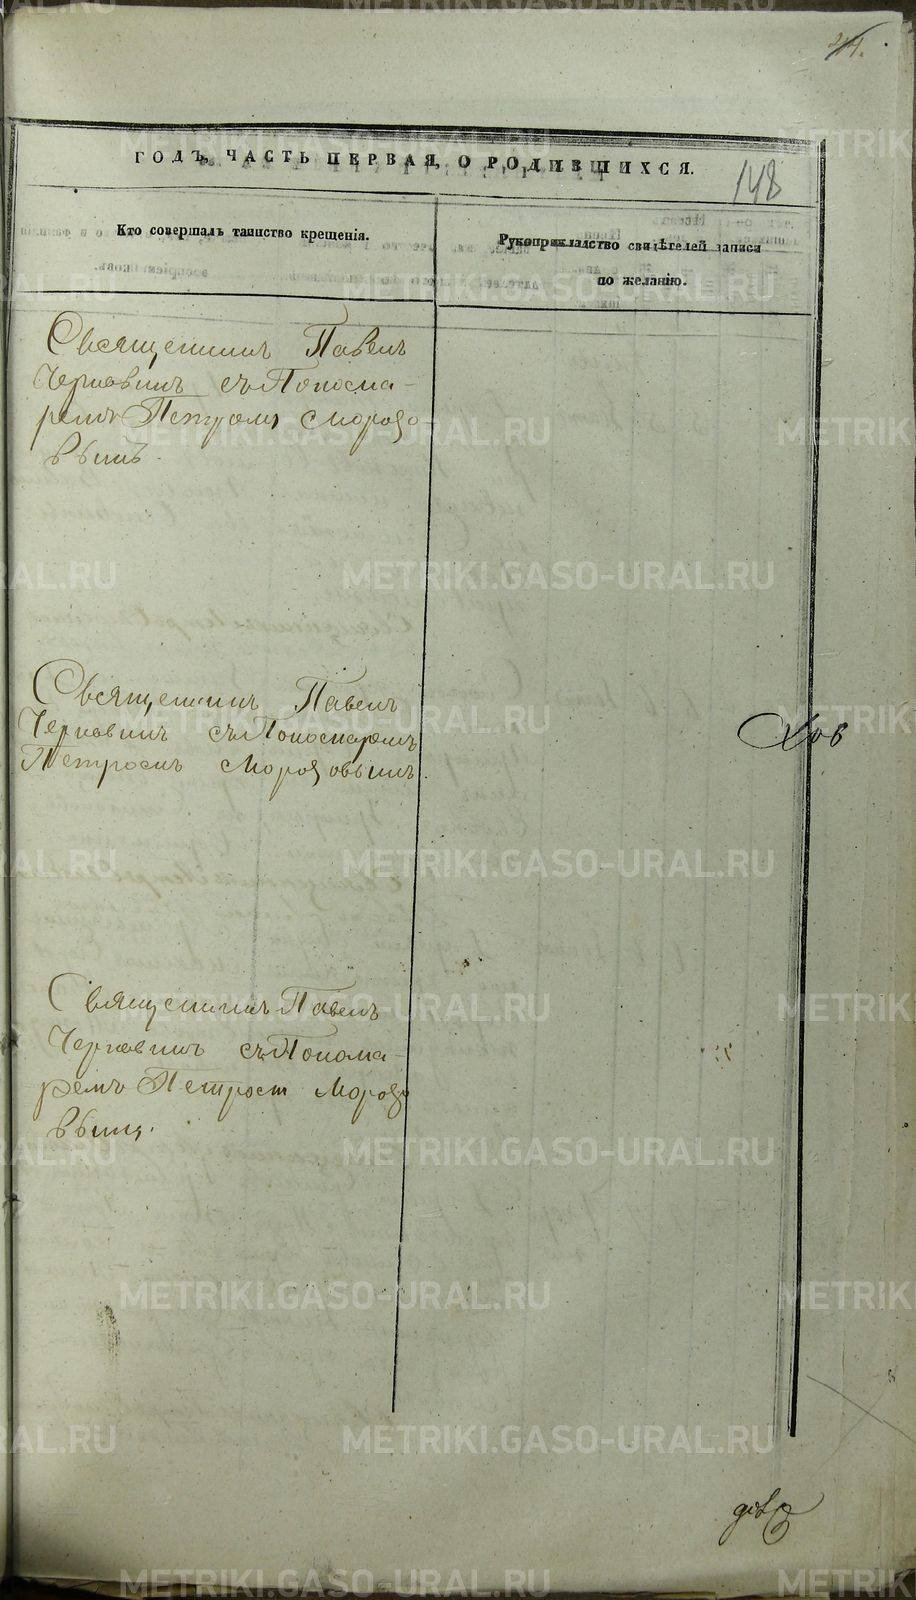 ГОДЪ, ЧАСТЬ ПЕРВАЯ, О РОДИВШИХСЯ.
148
Кто совершалъ таинство крещенія.
Рукоприкладство свидѣтелей записи
по желанію.
Священникъ Павелъ
Черкавинъ съ Поnома-
ремъ Петромъ Морозо
вымъ.
Священникъ Павелъ
Черкавинъ съ Пономаремъ
Петромъ Морозовымъ.
Хов
Священникъ Павелъ
Черкавинъ съ Понома-
ремъ Петромъ Морозо
вымъ.
METRIKI.GASO-URAL.RU